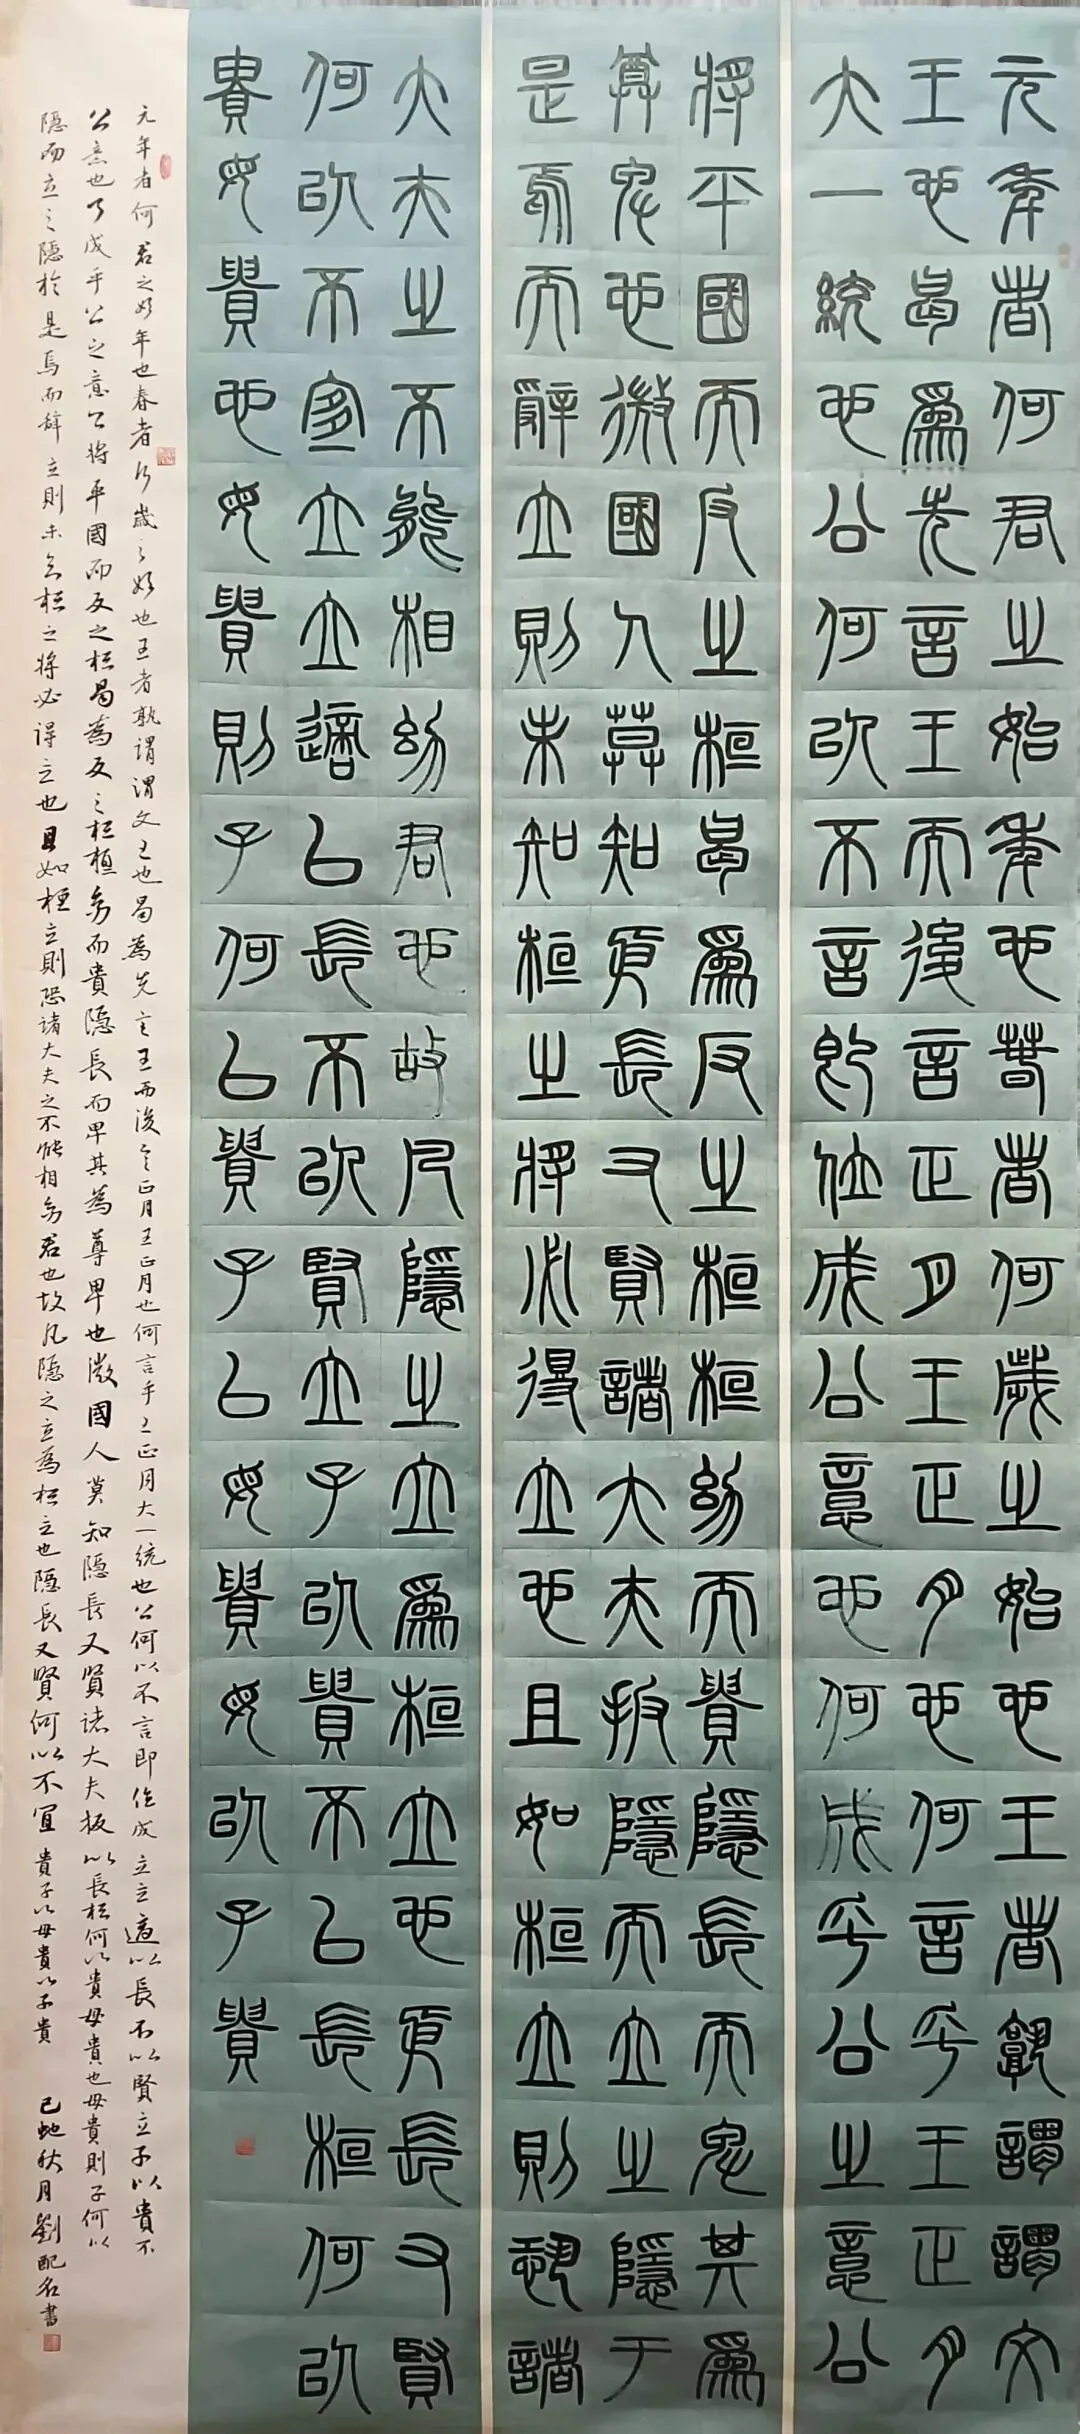 元年者何君之始年也春者何歲之始也王者孰謂謂文
王也曷爲先言王而後言正月王正月也何言乎王正月
大一統也公何以不言即位成公意也何成乎公之意公
將平國而反之桓曷爲反之桓桓幼而貴隱長而卑其爲
尊卑也微國人莫知隱長又賢諸大夫扳隱而立之隱于
是焉而辭立則未知桓之將必得立也且如桓立則恐諸
大夫之不能相幼君也故凡隱之立爲桓立也隱長又賢
何以不宜立立適以長不以賢立子以貴不以長桓何以
貴母貴也母貴則子何以貴子以母貴母以子貴
元年者何君之始年也春者何歲之始也王者孰謂謂文王也曷為先言王而後言正月王正月也何言乎王正月大一統也公何以不言即位成立立適以長不以賢立子以貴不
公意也何成乎公之意公將平國而反之桓曷為反之桓桓幼而貴隱長而卑其為尊卑也微國人莫知隱長又賢諸大夫扳以長桓何以貴母貴也母貴則子何以
隱而立之隱於是焉而辭立則未知桓之將必得立也且如桓立則恐諸大夫之不能相幼君也故凡隱之立為桓立也隱長又賢何以不宜貴子以母貴以子貴 己蛇秋月劉配名書